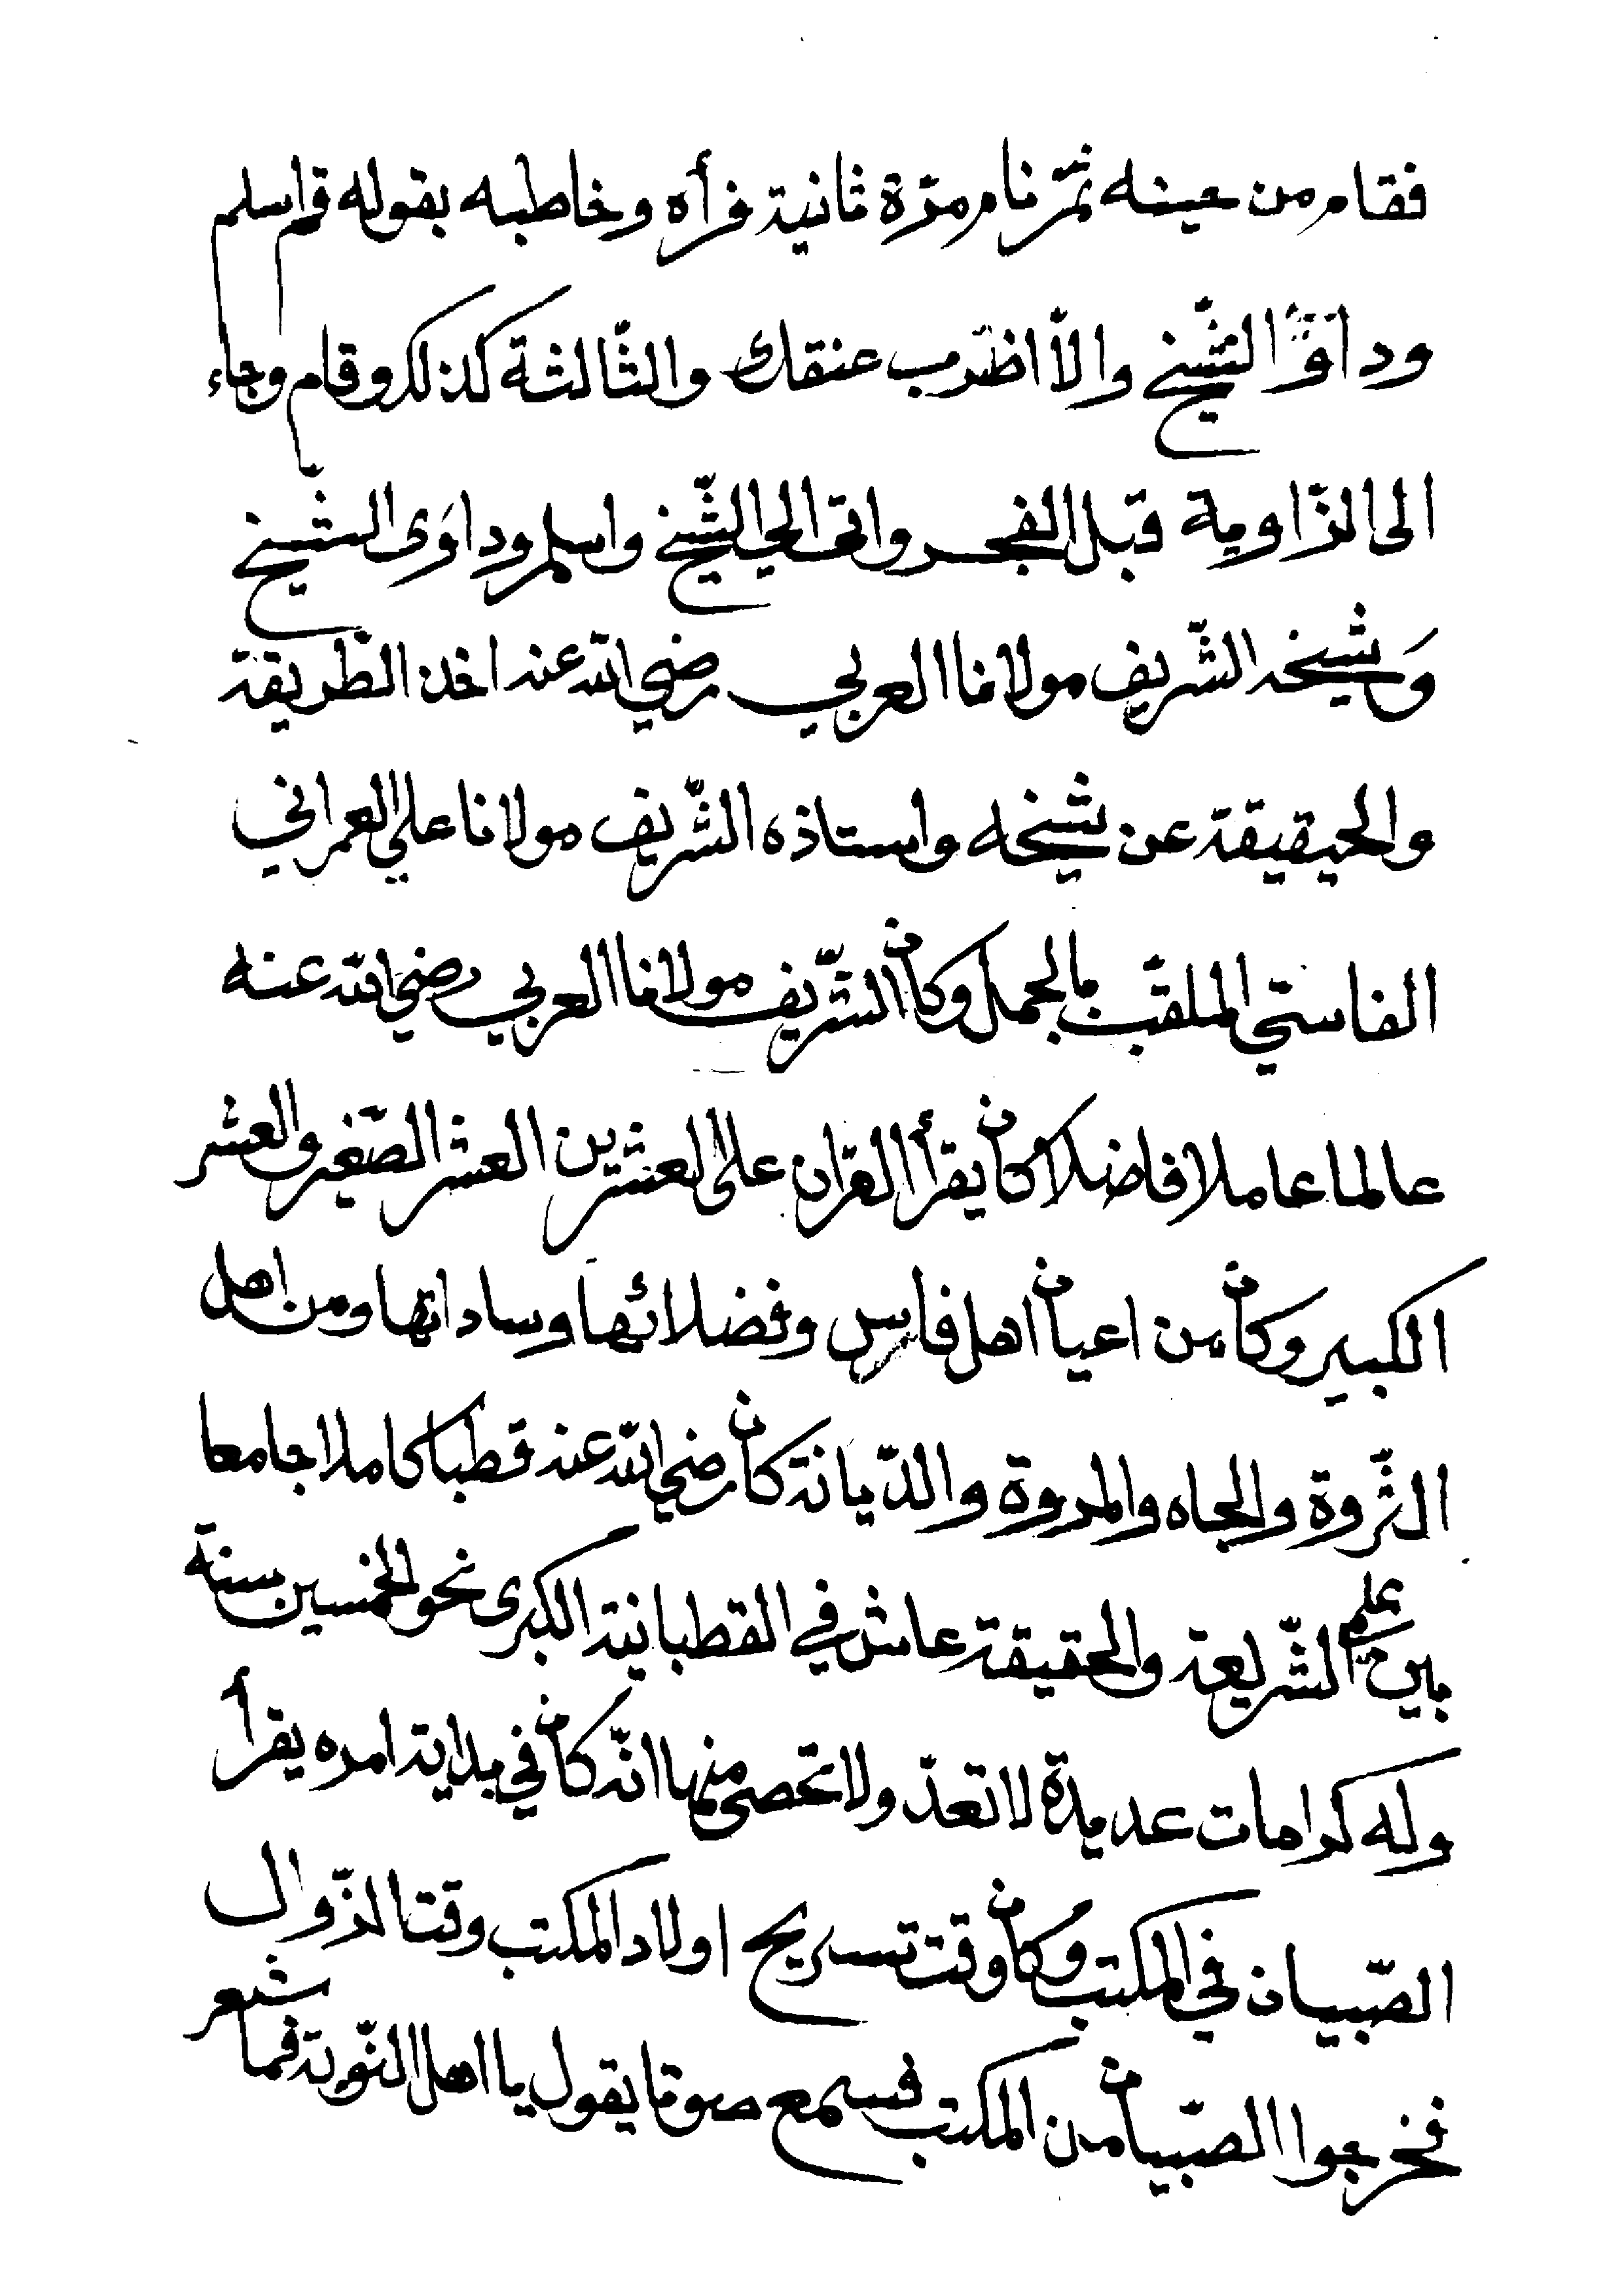 فقام من حينه ثمّ نام مرّة ثانية فرأه وخاطبه بقوله قم اسلم
وداوَ الشّيخ والاّ اضرب عنقك والثّالثة كذلك وقام وجاء
الى الزّاوية قبل الفجر واتى الي الشّيخ واسلم وداوَى الشّيخ
وَشيخه الشّريف مولانا العربي رضي الله عنه اخذ الطّريقة
والحيقيقة عن شيخه واستاذه الشّريف مولانا علي العمراني
الفاسيّ الملقّب بالجمل وكان الشّريف مولانا العربي رضي الله عنه
عالما عاملا فاضلا كان يقرأ القرّان على العشرين العشر الصّغير والعشر
الكبير وكان من اعيان اهل فارس وفضلائها وساداتها ومن اهل
الثّروة والجاه والمروة والدّيانة كان رضي الله عنه قطبا كاملا جامعا
بين علم الشّريعة والحقيقة عاش في القطبانية الكبرى نحو الخمسين سنة
وله كرامات عديدة لا تعدّ ولا تحصى منها انّه كان في بداية امره يقرأ
الصّبيان في المكتب وكان وقت تسريح اولاد المكتب وقتا لزّوال
فخرجوا الصّبيان من المكتب فسمع صوتا يقول يا اهل النّوبة فما شعر